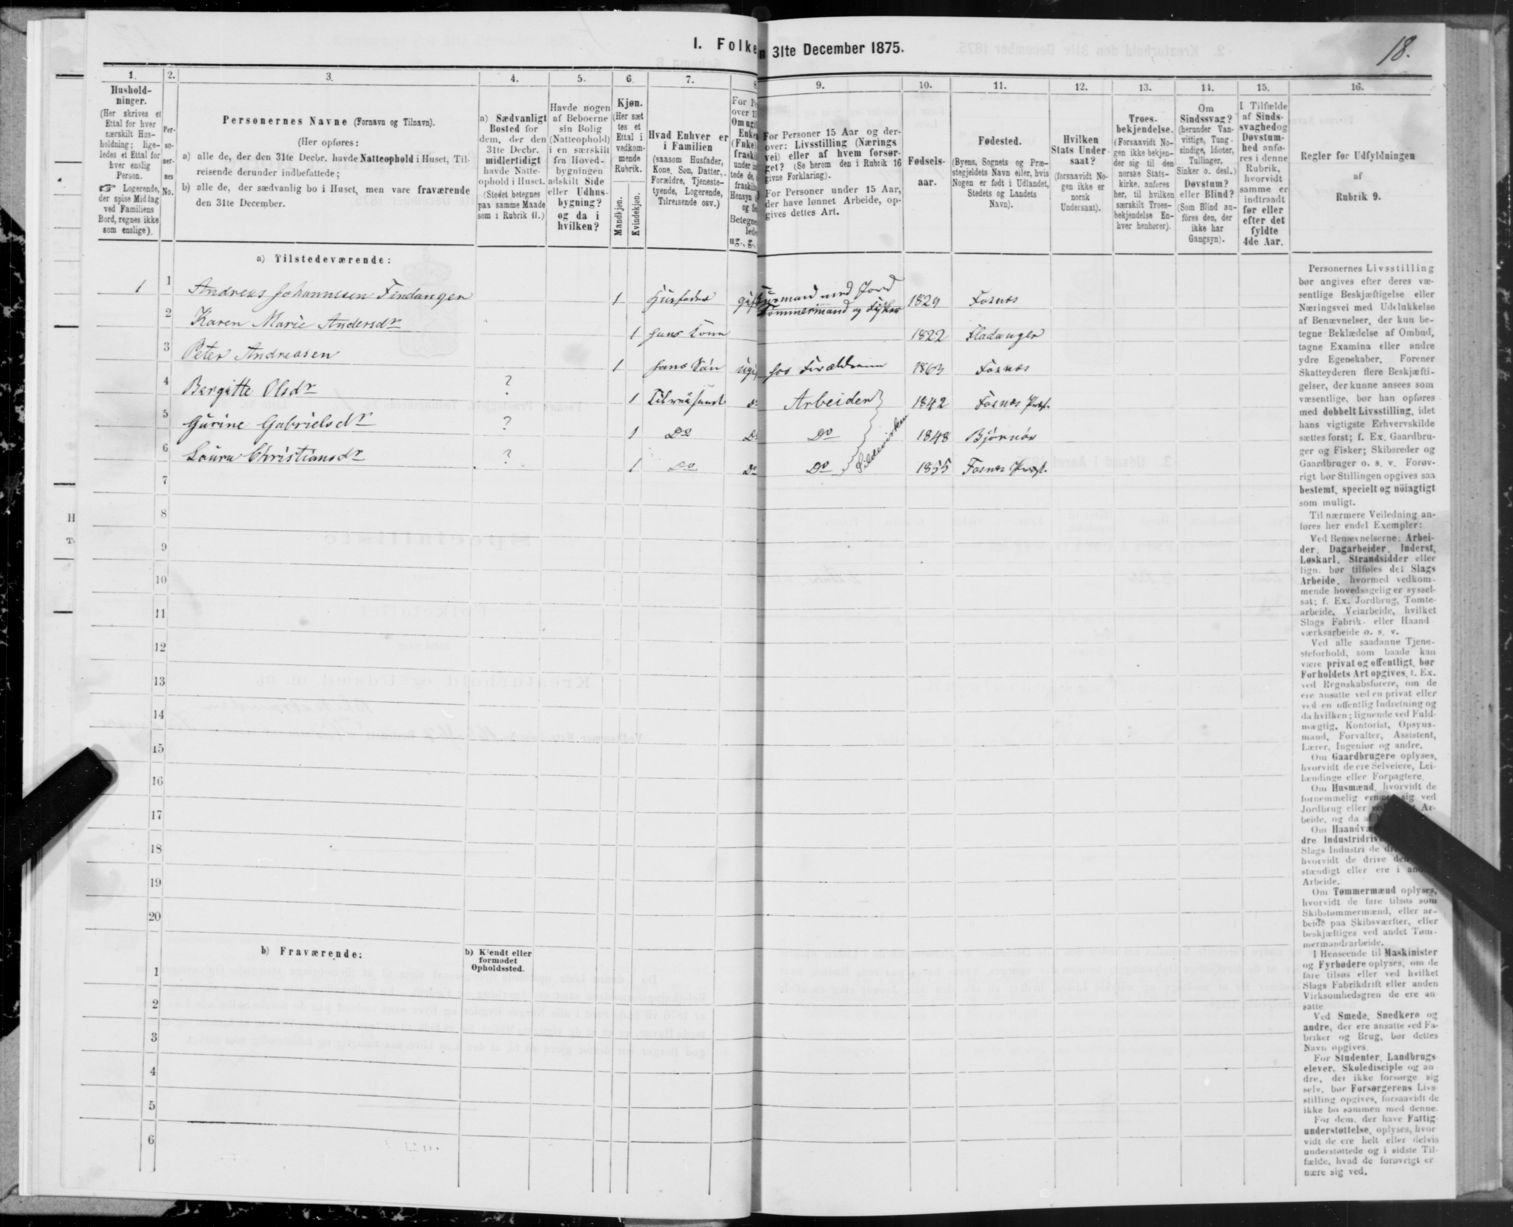 I. Folke n 31te December 1875.
18.
1.
2.
3.
4.
5.
6
7.
8
9.
10.
11.
12.
13.
14.
15.
16.
Hushold-
ninger.
(Her skrives et
Ettal for hver
særskilt Hus-
holdning; lige-
ledes et Ettal for
hver enslig
Person.
☞ Logerende,
der spise Middag
ved Familiens
Bord, regnes ikke
som enslige).
Per-
so-
ner-
nes
No.
Personernes Navne (Fornavn og Tilnavn).
(Her opføres:
a) alle de, der den 31te Decbr. havde Natteophold i Huset, Til-
reisende derunder indbefattede;
b) alle de, der sædvanlig bo i Huset, men vare fraværende
den 31te December.
a) Sædvanligt
Bosted for
dem, der den
31te Decbr.
midlertidigt
havde Natte-
ophold i Huset.
(Stedet betegnes
paa samme Maade
som i Rubrik 11.)
Havde nogen
af Beboerne
sin Bolig
(Natteophold)
i en særskilt
fra Hoved-
bygningen
adskilt Side
eller Udhus-
bygning?
og da i
hvilken?
Kjøn.
(Her sæt
tes et
Ettal i
vedkom-
mende
Rubrik.
Mandkjøn.
Kvindekjøn.
Hvad Enhver er
i Familien
(saasom Husfader,
Kone, Søn, Datter,
Forældre, Tjeneste-
tyende, Logerende,
Tilreisende osv.)
For Personer 15 Aar og der-
over: Livsstilling (Nærings
vei) eller af hvem forsør-
get? (Se herom den i Rubrik 16
givne Forklaring).
For Personer under 15 Aar,
der have lønnet Arbeide, op-
gives dettes Art.
Fødsels-
aar.
Fødested.
(Byens, Sognets og Præ-
stegjeldets Navn eller, hvis
Nogen er født i Udlandet,
Stedets og Landets
Navn).
Hvilken
Stats Under-
saat?
(forsaavidt No-
gen ikke er
norsk
Undersaat).
Troes-
bekjendelse.
(Forsaavidt No-
gen ikke bekjen-
der sig til den
norske Stats-
kirke, anføres
her, til hvilken
særskilt Troes-
bekjendelse En-
hver henhører).
Om
Sindssvag?
(herunder Van-
vittige, Tung-
sindige, Idioter,
Tullinger,
Sinker o. desl.)
Døvstum?
eller Blind?
(Som Blind an-
føres den, der
ikke har
Gangsyn).
I Tilfælde
af Sinds-
svaghed og
Døvstum-
hed anfø-
res i denne
Rubrik,
hvorvidt
samme er
indtraadt
før eller
efter det
fyldte
4de Aar.
Regler for Udfyldningen
af
Rubrik 9.
a) Tilstedeværende:
1 1 Andreas Johannesen Findanger 1 Husfader gift Husmand med Jord Tømmermand og Fisker 1829 Fosnæs
2 Karen Marie Andersdr 1 hans Kone 1822 Fladanger
3 Peter Andreasen 1 hans Søn ugift hos Forældrene 1863 Fosnæs
4 Bergitte Olsdr ? 1 Tilreisende Do Arbeider 1842 Fosnæs Præst.
5 Gurine Gabrielsdr ? 1 Do Do Do 1848 Bjørnør
6 Laura Christiansdr ? 1 Do Do Do 1855 Fosnæs Præst.
7
8
9
10
11
12
13
14
15
16
17
18
19
20
b) Fraværende:
b) Kjendt eller
formodet
Opholdssted.
1
2
3
4
5
6
Personernes Livsstilling
bør angives efter deres væ-
sentlige Beskjæftigelse eller
Næringsvei med Udelukkelse
af Benævnelser, der kun be-
tegne Beklædelse af Ombud,
tagne Examina eller andre
ydre Egenskaber. Forener
Skatteyderen flere Beskjæfti-
gelser, der kunne ansees som
væsentlige, bør han opføres
med dobbelt Livsstilling, idet
hans vigtigste Erhvervskilde
sættes først; f. Ex. Gaardbru-
ger og Fisker; Skibsreder og
Gaardbruger o. s. v. Forøv-
rigt bør Stillingen opgives saa
bestemt, specielt og nöiagtigt
som muligt.
Til nærmere Veiledning an-
føres her endel Exempler:
Ved Benævnelserne: Arbei-
der, Dagarbeider, Inderst,
Løskarl, Strandsidder eller
lign. bør tilføies det Slags
Arbeide, hvormed vedkom-
mende hovedsagelig er syssel-
sat; f. Ex. Jordbrug, Tomte-
arbeide, Veiarbeide, hvilket
Slags Fabrik- eller Haand-
værksarbeide o. s. v.
Ved alle saadanne Tjene-
steforhold, som baade kan
være privat og offentligt, bør
Forholdets Art opgives, f. Ex.
ved Regnskabsførere, om de
ere ansatte ved en privat eller
ved en offentlig Indretning og
da hvilken; lignende ved Fuld-
mægtig, Kontorist, Opsyns-
mand, Forvalter, Assistent,
Lærer, Ingeniør og andre.
Om Gaardbrugere oplyses,
hvorvidt de ere Selveiere, Lei-
lændinge eller Forpagtere.
Om Husmænd, hvorvidt de
fornemmelig ernære sig ved
Jordbrug eller
beide, og da
Om Haandvæ
dre Industridriv
Slags Industri de
hvorvidt de drive
stændigt eller ere i
Arbeide.
Om Tømmermænd oplyses,
hvorvidt de fare tilsøs som
Skibstømmermænd, eller ar-
beide paa Skibsværfter, eller
beskjæftiges ved andet Tøm-
mermandsarbeide.
I Henseende til Maskinister
og Fyrbødere oplyses, om de
fare tilsøs eller ved hvilket
Slags Fabrikdrift eller anden
Virksomhedsgren de ere an-
satte
Ved Smede, Snedkere og
andre, der ere ansatte ved Fa-
briker og Brug, bør dettes
Navn opgives.
For Studenter, Landbrugs-
elever, Skoledisciple og an-
dre, der ikke forsørge sig
selv, bør Forsørgerens Livs-
stilling opgives, forsaavidt de
ikke bo sammen med denne.
For dem, der have Fattig-
understøttelse, oplyses, hvor-
vidt de ere helt eller delvis
understøttede og i sidste Til-
fælde, hvad de forøvrigt er-
nære sig ved.